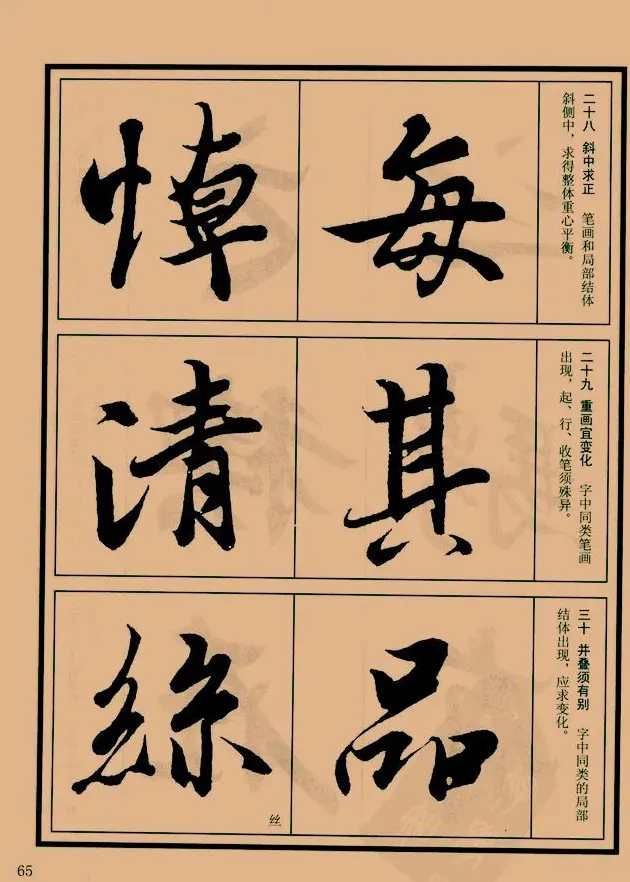 二十八 斜中求正 笔画和局部结体
斜侧中，求得整体重心平衡。
每
悼
二十九 重画宜变化 字中同类笔画
出现，起、行、收笔须殊异。
其
清
三十 并叠须有别 字中同类的局部
结体出现，应求变化。
品
絲
丝
65